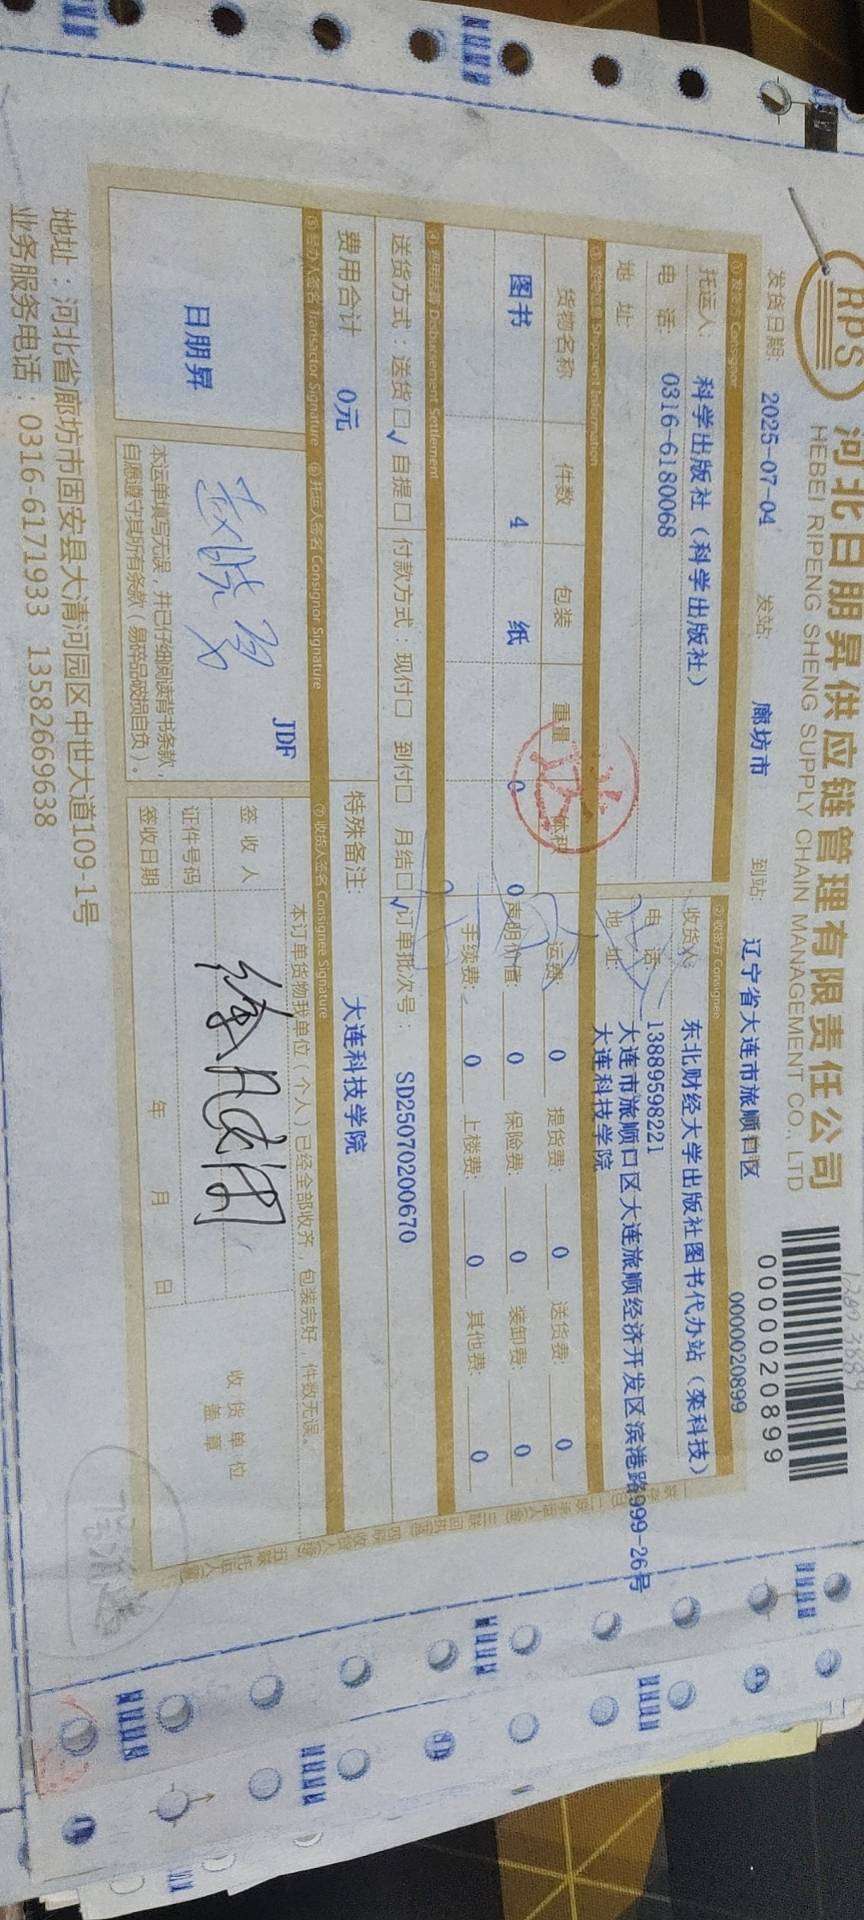 RPS
河北日朋昇供应链管理有限责任公司
HEBEI RIPENG SHENG SUPPLY CHAIN MANAGEMENT CO., LTD
0000020899
发货日期: 2025-07-04 发站: 廊坊市 到站: 辽宁省大连市旅顺口区 0000020899
① 发货方 Consignor ② 收货方 Consignee
托运人: 科学出版社（科学出版社） 收货人: 东北财经大学出版社图书代办站（栾科技）
电 话: 0316-6180068 电 话: 13889598221
地 址: 地 址: 大连市旅顺口区大连旅顺经济开发区滨港路999-26号
大连科技学院
③ 货物信息 Shipment Information
货物名称 件数 包装 重量 体积 运费: 0 提货费: 0 送货费: 0
图书 4 纸 0 0 声明价值: 0 保险费: 0 装卸费: 0
手续费: 0 上楼费: 0 其他费: 0
④ 费用结算 Disbursement Settlement
送货方式: 送货□√ 自提□ 付款方式: 现付□ 到付□ 月结□√ 订单批次号: SD25070200670
费用合计 0元 特殊备注: 大连科技学院
⑤ 经办人签名 Transactor Signature ⑥ 托运人签名 Consignor Signature ⑦ 收货人签名 Consignee Signature
本订单货物我单位（个人）已经全部收齐，包装完好，件数无误。
JDF
日朋昇
签 收 人
证件号码
签收日期 年 月 日
收货单位
盖 章
本运单填写无误，并已仔细阅读背书条款，
自愿遵守其所有条款（易碎品破损自负）。
地址：河北省廊坊市固安县大清河园区中世大道109-1号
业务服务电话：0316-6171933 13582669638